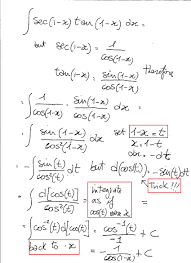 ∫sec(1-x)tan(1-x)dx =
but sec(1-x) = 1/cos(1-x)
tan(1-x) = sin(1-x)/cos(1-x) therefore
= ∫ 1/cos(1-x) · sin(1-x)/cos(1-x) dx =
= ∫ sin(1-x)/cos²(1-x) dx set 1-x=t
x=1-t
dx=-dt
= -∫ sin(t)/cos²(t) dt but d[cos(t)]=-sin(t)dt
TRICK!!!
= ∫ d[cos(t)]/cos²(t) = integrate as if cos(t) were x
= ∫cos⁻²(t)d[cos(t)] = cos⁻¹(t)/-1 + C
back to x = -1/cos(1-x) + C